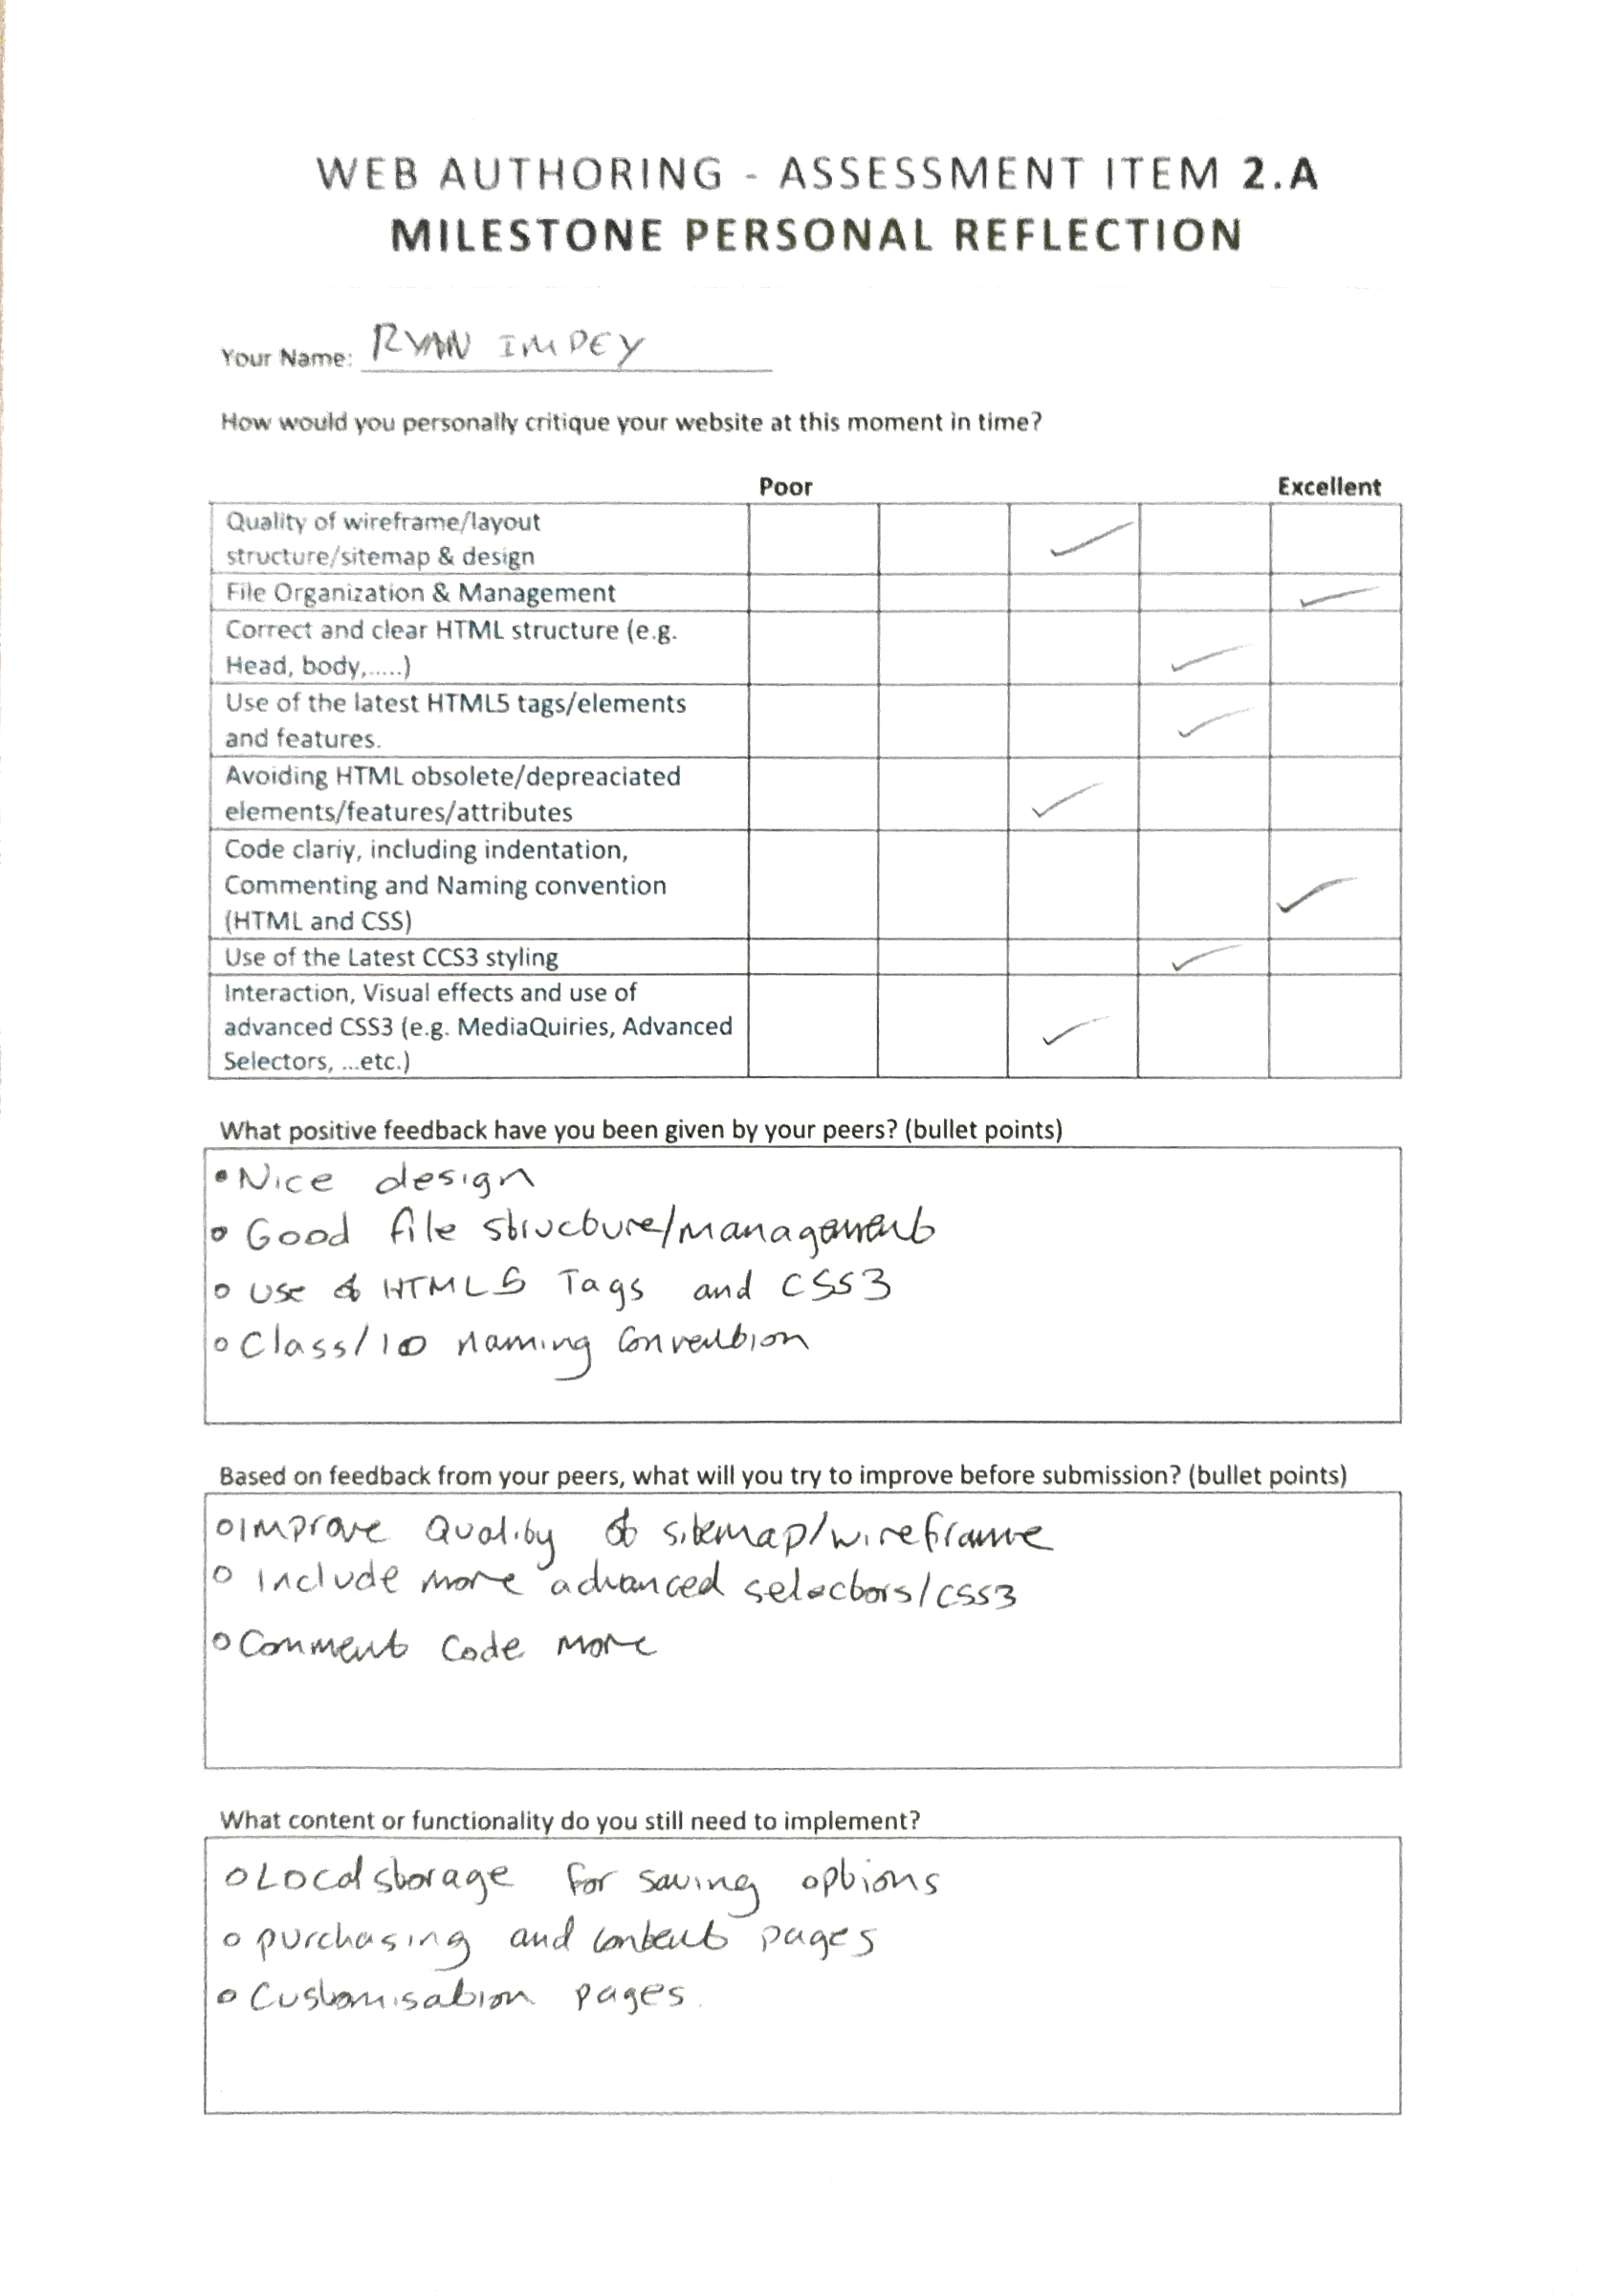 WEB AUTHORING - ASSESSMENT ITEM 2.A
MILESTONE PERSONAL REFLECTION
Your Name: RYAN IMPEY
How would you personally critique your website at this moment in time?
Poor Excellent
Quality of wireframe/layout
structure/sitemap & design ✓
File Organization & Management ✓
Correct and clear HTML structure (e.g.
Head, body,.....) ✓
Use of the latest HTML5 tags/elements
and features. ✓
Avoiding HTML obsolete/depreaciated
elements/features/attributes ✓
Code clariy, including indentation,
Commenting and Naming convention
(HTML and CSS) ✓
Use of the Latest CCS3 styling ✓
Interaction, Visual effects and use of
advanced CSS3 (e.g. MediaQuiries, Advanced
Selectors, ...etc.) ✓
What positive feedback have you been given by your peers? (bullet points)
• Nice design
• Good file structure/management
• Use of HTML5 Tags and CSS3
• Class/ID naming convention
Based on feedback from your peers, what will you try to improve before submission? (bullet points)
• Improve Quality of sitemap/wireframe
• Include more advanced selectors/CSS3
• Comment code more
What content or functionality do you still need to implement?
• Local storage for saving options
• purchasing and content pages
• Customisation pages.